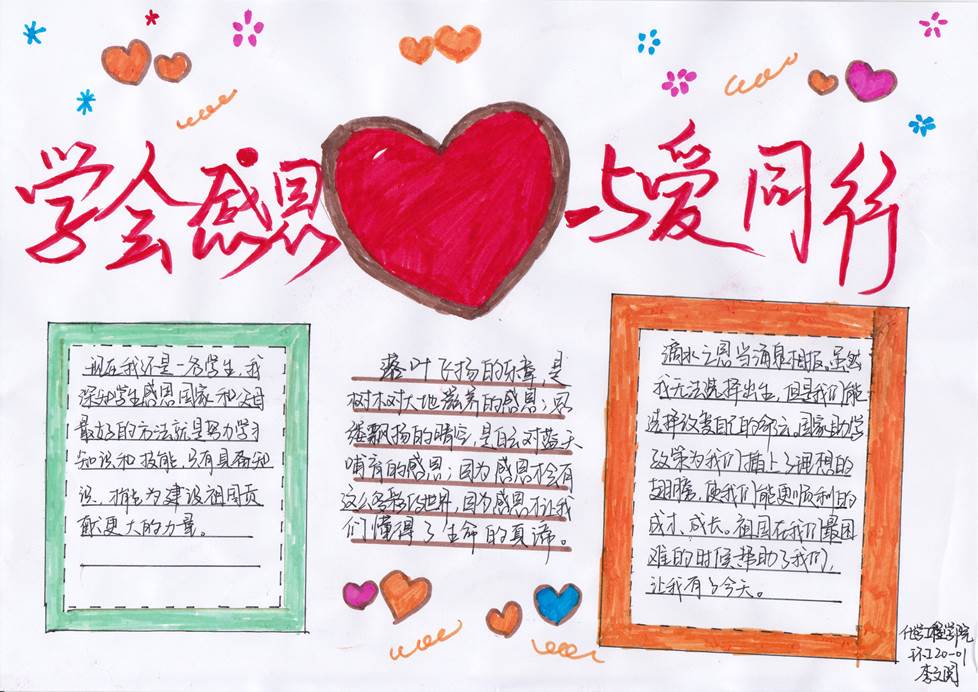 学会感恩 与爱同行
现在我还是一名学生,我
深知学生感恩国家和父母
最好的方法就是努力学习
知识和技能,只有具备知
识,才能为建设祖国贡
献更大的力量。
落叶飞扬的乐章,是
树木对大地滋养的感恩;
缕飘扬的晴空,是白云对蓝天
哺育的感恩;因为感恩才会有
这么多彩的世界,因为感恩才让我
们懂得了生命的真谛。
滴水之恩当涌泉相报。虽然
我无法选择出生,但是我们能
选择改变自己的命运。国家助学
政策为我们插上了理想的
翅膀,使我们能更顺利的
成才、成长。祖国在我们最困
难的时候帮助了我们,
让我有了今天。
化学工程学院
环工20-01
李文